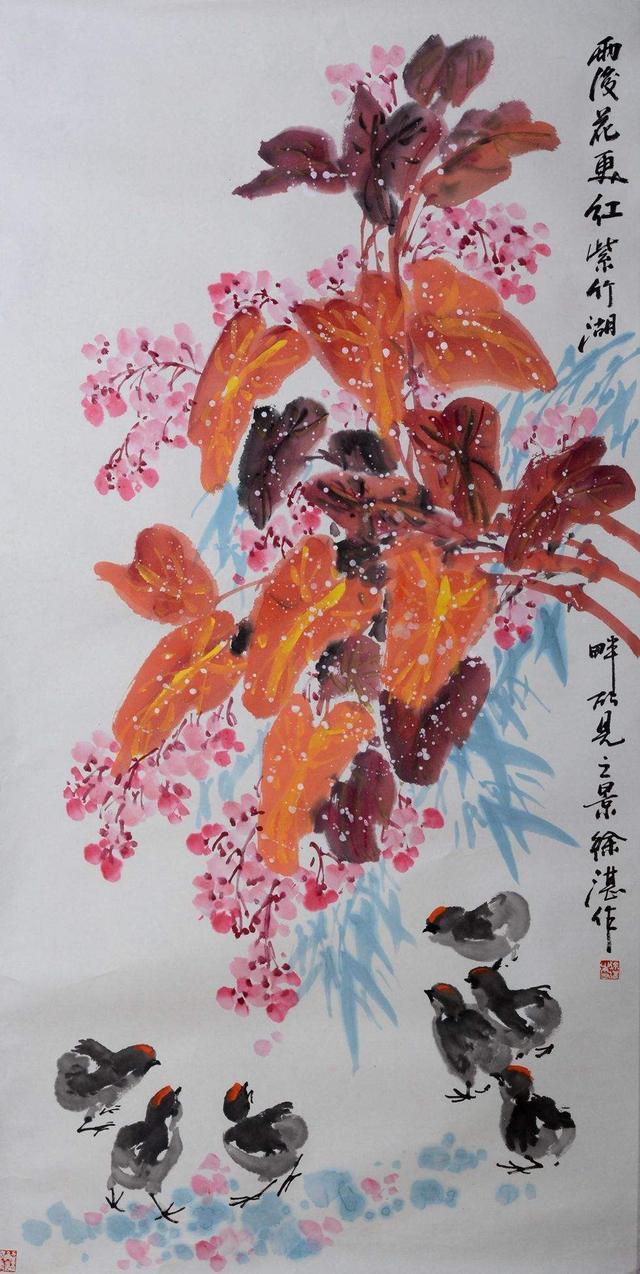 雨后花更红紫竹湖
畔所见之景徐湛作